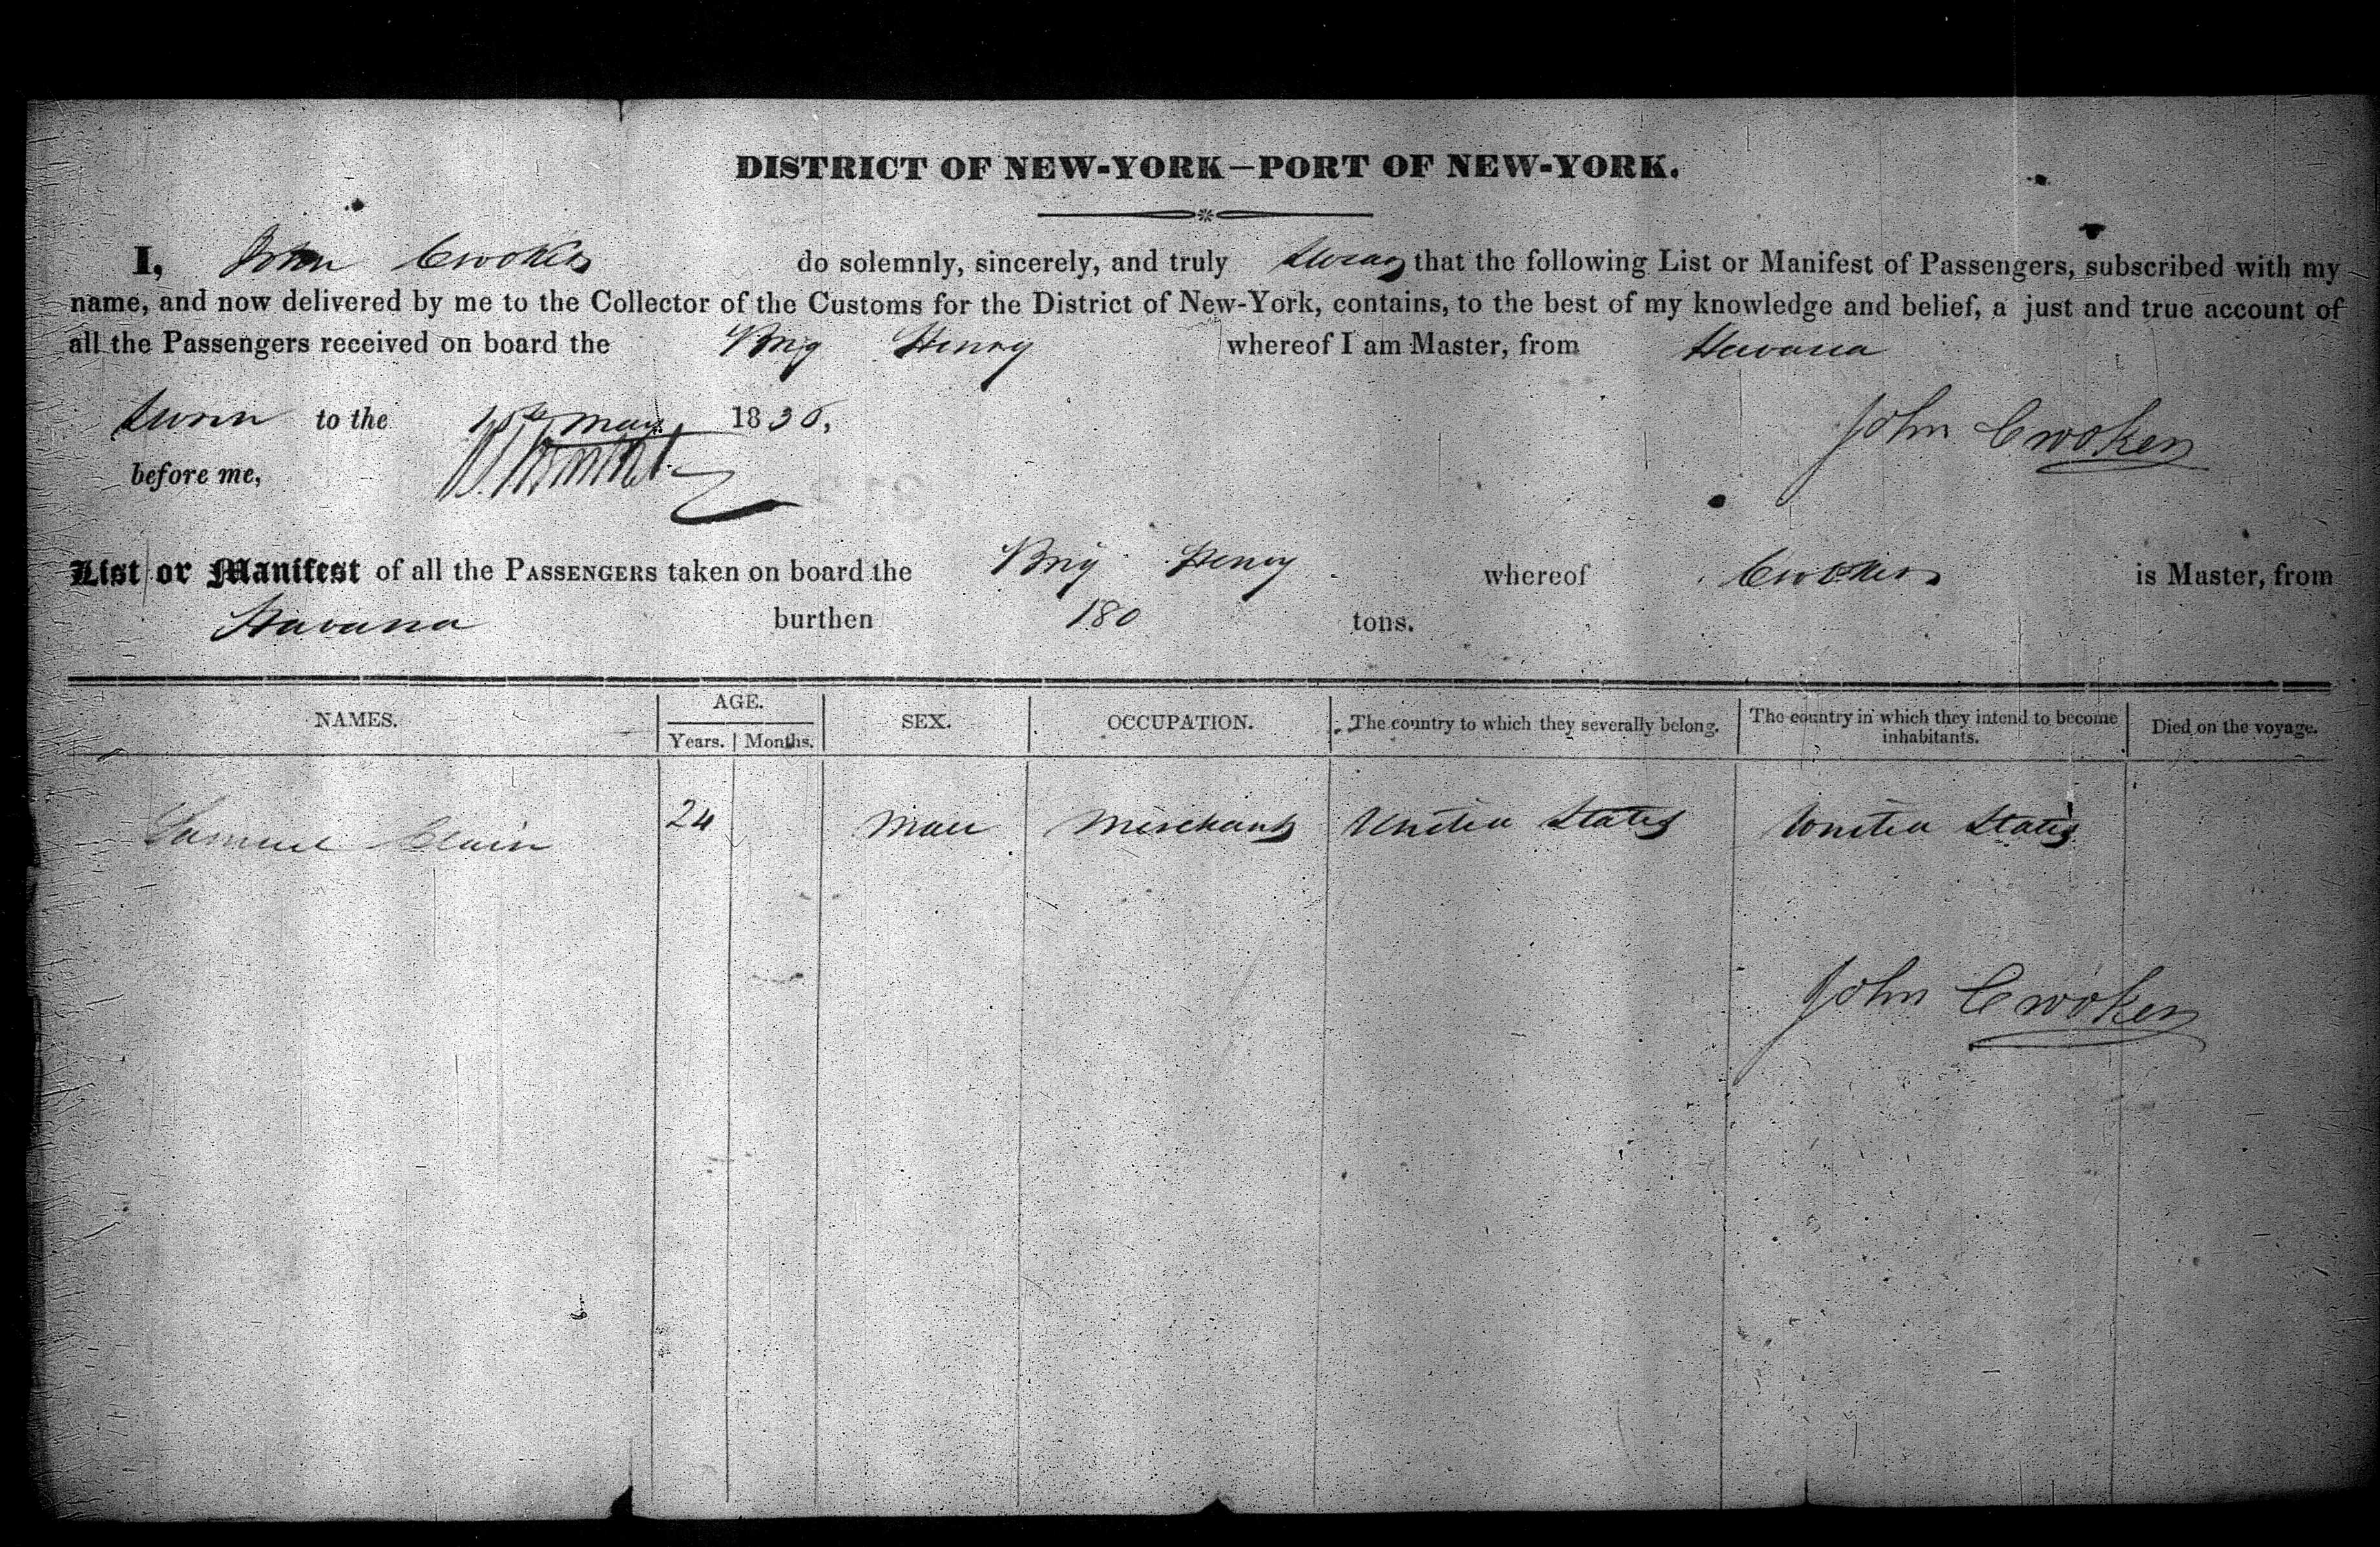 DISTRICT OF NEW-YORK—PORT OF NEW-YORK.
I, John Crooker do solemnly, sincerely, and truly swear that the following List or Manifest of Passengers, subscribed with my
name, and now delivered by me to the Collector of the Customs for the District of New-York, contains, to the best of my knowledge and belief, a just and true account of
all the Passengers received on board the Brig Henry whereof I am Master, from Havana
Sworn to the 15th May 1836,
John Crooker
before me,
List or Manifest of all the PASSENGERS taken on board the Brig Henry whereof Crooker is Master, from
Havana burthen 180 tons.
NAMES. AGE. SEX. OCCUPATION. The country to which they severally belong. The country in which they intend to become inhabitants. Died on the voyage.
Years. Months.
Samuel 24 Male Merchant United States United States
John Crooker